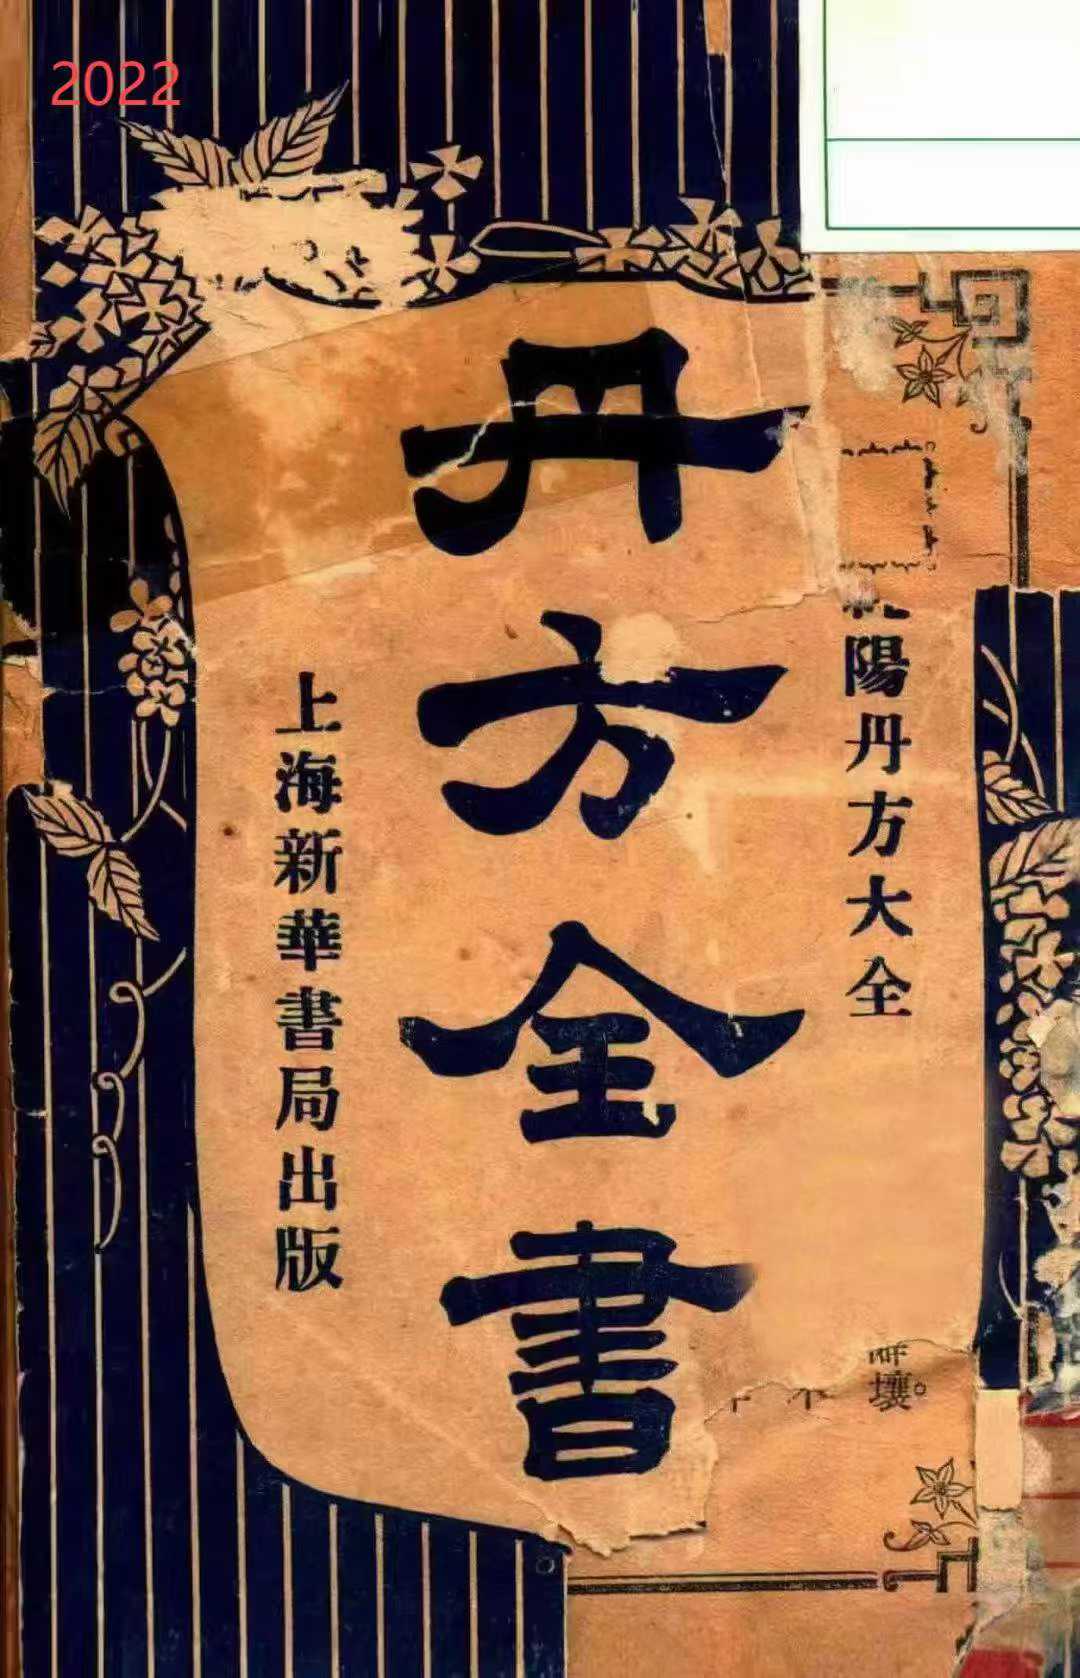 2022
陽丹方大全
丹方全書
上海新華書局出版
壞。